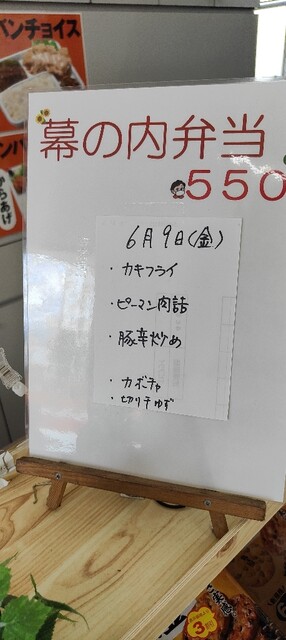 バンチョイス
幕の内弁当
550
6月9日(金)
・カキフライ
・ピーマン肉詰
・豚辛炒め
・カボチャ
・切り干ゆず
からあげ